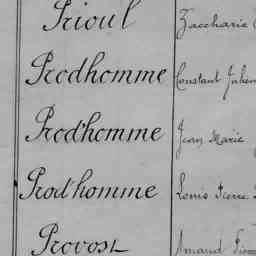 Prioul Zaccharie
Prodhomme Constant Julien
Prod'homme Jean Marie
Prod'homme Louis Pierre
Provost Amand